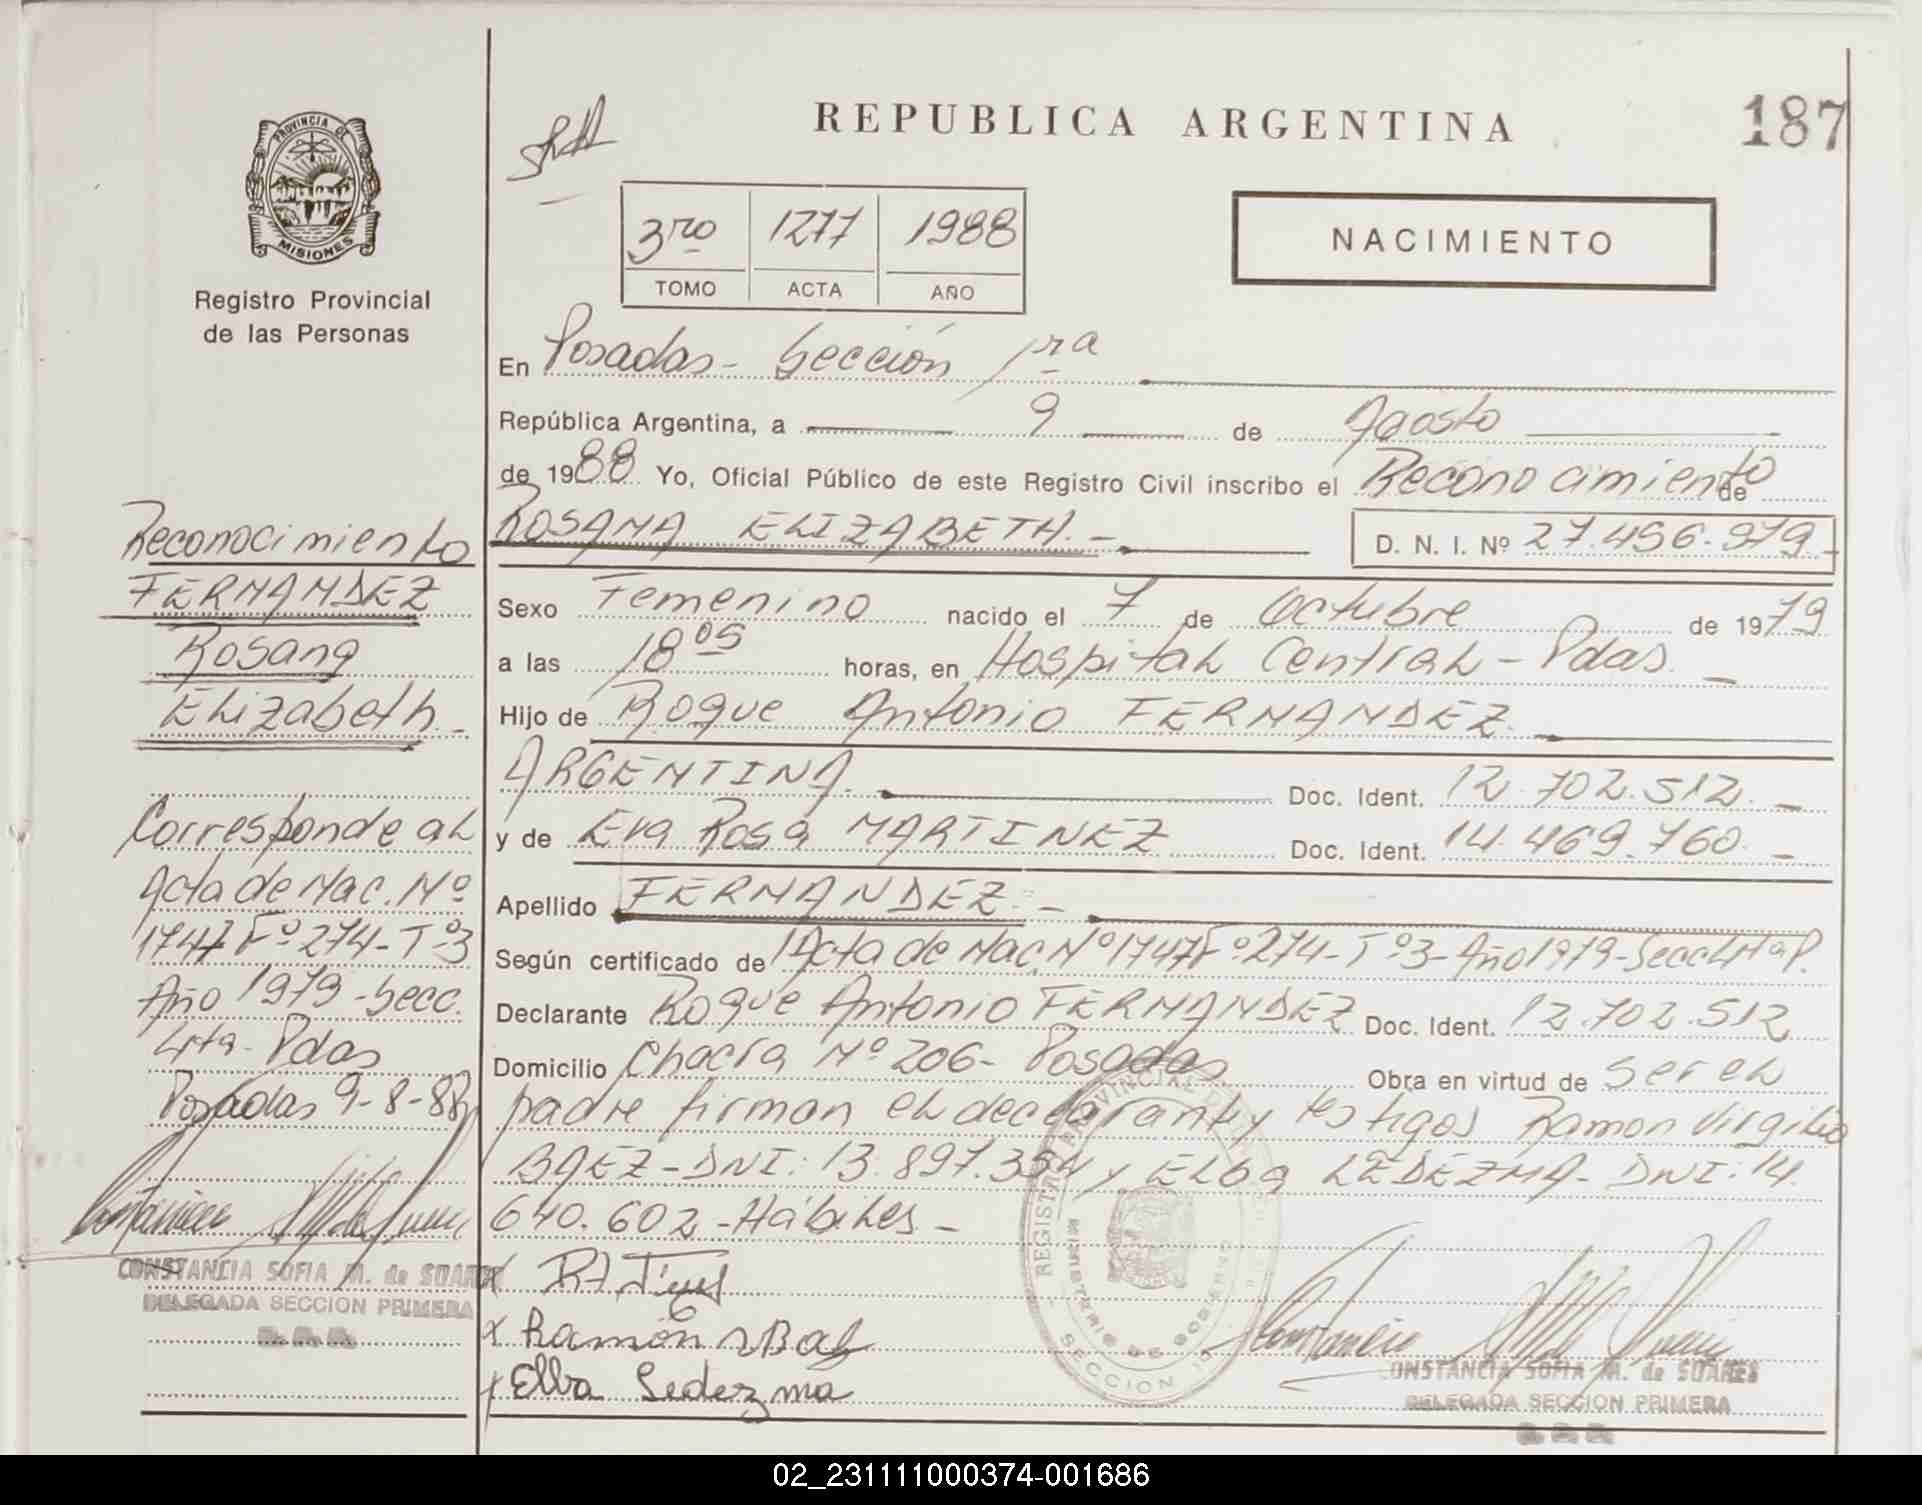 PROVINCIA DE
MISIONES
Registro Provincial
de las Personas
Reconocimiento
FERNANDEZ
Rosana
Elizabeth.-
Corresponde al
Acta de Nac. Nº
1747 Fº 274 - Tº 3
Año 1979 - Secc.
4ta - Pdas
Posadas 9-8-88
CONSTANCIA SOFIA M. de SOARES
DELEGADA SECCION PRIMERA
REPUBLICA ARGENTINA
187
3ro 1277 1988
TOMO ACTA AÑO
NACIMIENTO
En Posadas - Sección 1ra
República Argentina, a 9 de Agosto
de 1988 Yo, Oficial Público de este Registro Civil inscribo el Reconocimiento de
ROSANA ELIZABETH.- D. N. I. Nº 27.496.979-
Sexo Femenino nacido el 7 de Octubre de 1979
a las 18 05 horas, en Hospital Central - Pdas. -
Hijo de Roque Antonio FERNANDEZ.-
ARGENTINA. Doc. Ident. 12.702.512.-
y de Eva Rosa MARTINEZ Doc. Ident. 14.469.760.-
Apellido FERNANDEZ.-
Según certificado de Acta de Nac. Nº 1747 Fº 274 - Tº 3 - Año 1979 - Secc 4ta P.
Declarante Roque Antonio FERNANDEZ Doc. Ident. 12.702.512
Domicilio Chacra Nº 206 - Posadas Obra en virtud de ser el
padre firman el declarante y testigos Ramon Virgilio
BAEZ - DNI: 13.897.354 y ELBA LEDEZMA - DNI: 14.
640.602 - Hábiles -
x Ramón
x Elba Ledezma
REGISTRO PROVINCIAL DE
MINISTERIO DE GOBIERNO
SECCION
CONSTANCIA SOFIA M. de SOARES
DELEGADA SECCION PRIMERA
02_231111000374-001686